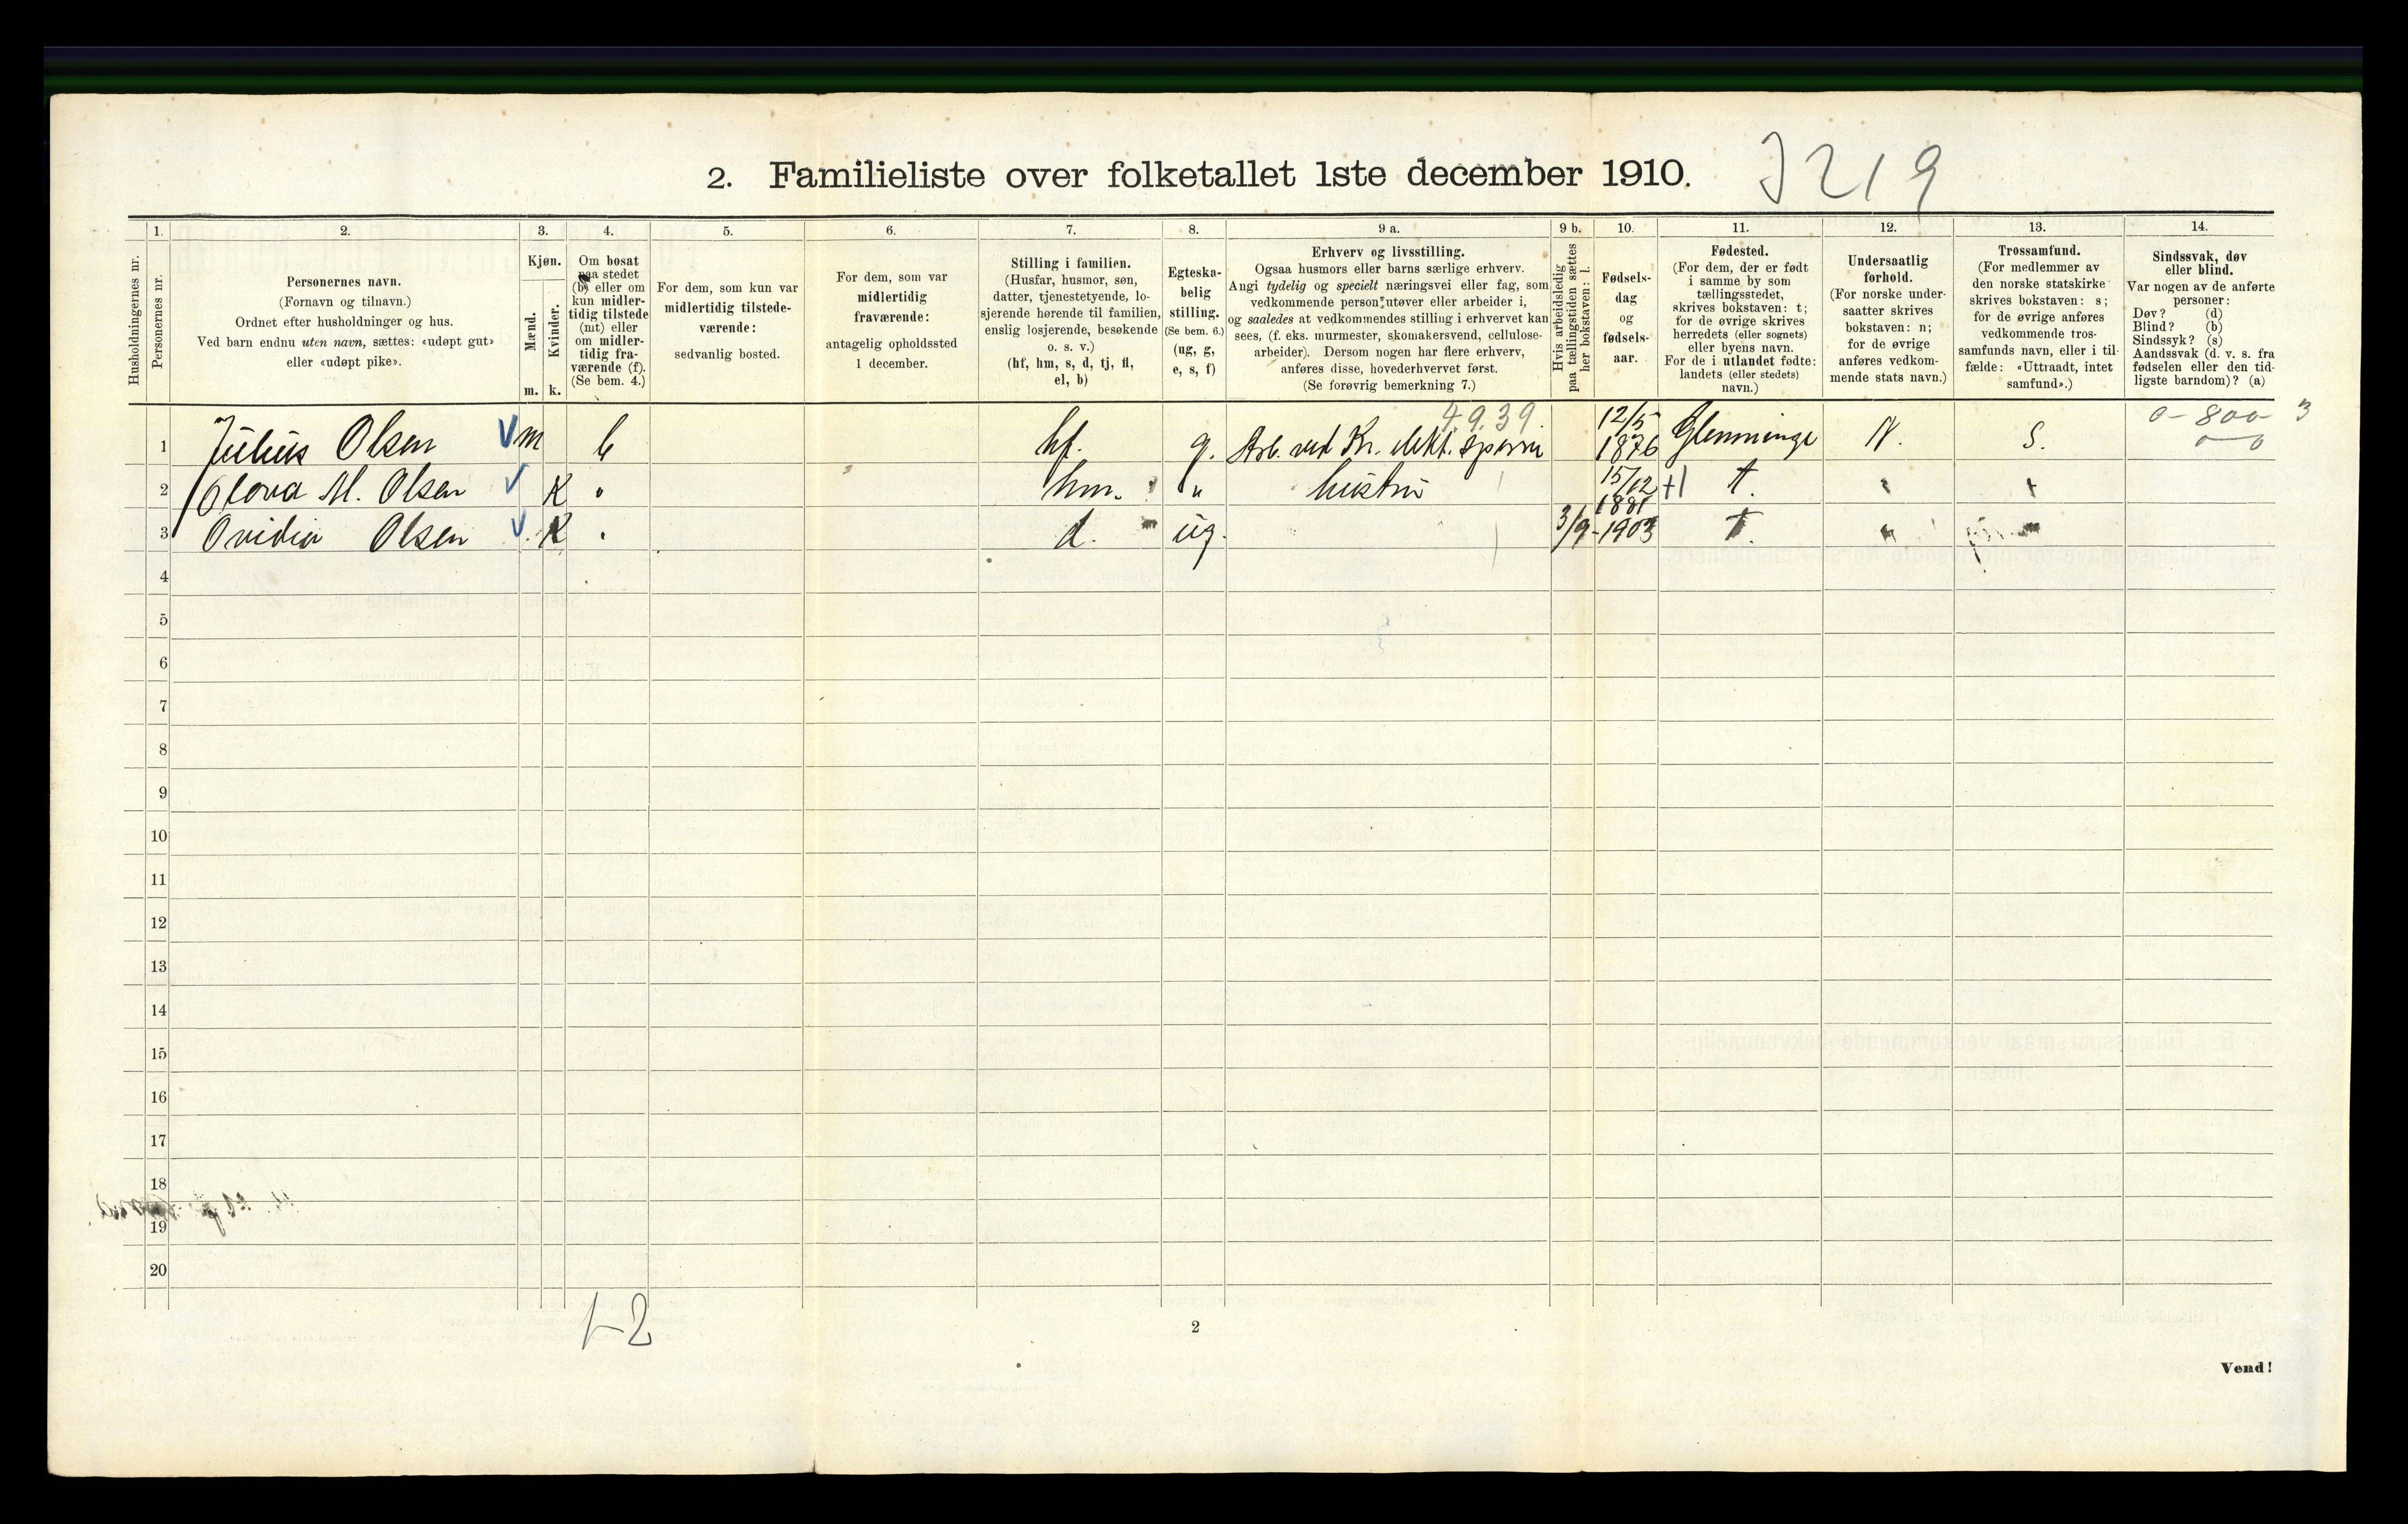 2. Familieliste over folketallet 1ste december 1910.
3219
Husholdningernes nr.
1.
Personernes nr.
2.
Personernes navn.
(Fornavn og tilnavn.)
Ordnet efter husholdninger og hus.
Ved barn endnu uten navn, sættes: «udøpt gut»
eller «udøpt pike».
3.
Kjøn.
Mænd.
Kvinder.
m. k.
4.
Om bosat
paa stedet
(b) eller om
kun midler-
tidig tilstede
(mt) eller
om midler-
tidig fra-
værende (f).
(Se bem. 4.)
5.
For dem, som kun var
midlertidig tilstede-
værende:
sedvanlig bosted.
6.
For dem, som var
midlertidig
fraværende:
antagelig opholdssted
1 december.
7.
Stilling i familien.
(Husfar, husmor, søn,
datter, tjenestetyende, lo-
sjerende hørende til familien,
enslig losjerende, besøkende
o. s. v.)
(hf, hm, s, d, tj, fl,
el, b)
8.
Egteska-
belig
stilling.
(Se bem. 6.)
(ug, g,
e, s, f)
9 a.
Erhverv og livsstilling.
Ogsaa husmors eller barns særlige erhverv.
Angi tydelig og specielt næringsvei eller fag, som
vedkommende person utøver eller arbeider i,
og saaledes at vedkommendes stilling i erhvervet kan
sees, (f. eks. murmester, skomakersvend, cellulose-
arbeider). Dersom nogen har flere erhverv,
anføres disse, hovederhvervet først.
(Se forøvrig bemerkning 7.)
9 b.
Hvis arbeidsledig
paa tællingstiden sættes
her bokstaven: l.
10.
Fødsels-
dag
og
fødsels-
aar.
11.
Fødested.
(For dem, der er født
i samme by som
tællingsstedet,
skrives bokstaven: t;
for de øvrige skrives
herredets (eller sognets)
eller byens navn.
For de i utlandet fødte:
landets (eller stedets)
navn.)
12.
Undersaatlig
forhold.
(For norske under-
saatter skrives
bokstaven: n;
for de øvrige
anføres vedkom-
mende stats navn.)
13.
Trossamfund.
(For medlemmer av
den norske statskirke
skrives bokstaven: s;
for de øvrige anføres
vedkommende tros-
samfunds navn, eller i til-
fælde: «Uttraadt, intet
samfund».)
14.
Sindssvak, døv
eller blind.
Var nogen av de anførte
personer:
Døv? (d)
Blind? (b)
Sindssyk? (s)
Aandssvak (d. v. s. fra
fødselen eller den tid-
ligste barndom)? (a)
4.9.39. 0-800 3
1 Julius Olsen m b hf. g. Arb. ved Kr. elekt. sporvei 12/5 1876 Glemminge N. S. 0-0
2 Olova M. Olsen K " hm. " hustru 15/12 1881 t.
3 Ovidia Olsen K " d. ug. 3/9-1903 t. "
4
5
6
7
8
9
10
11
12
13
14
15
16
17
18
19
20
1-2
2
Vend!